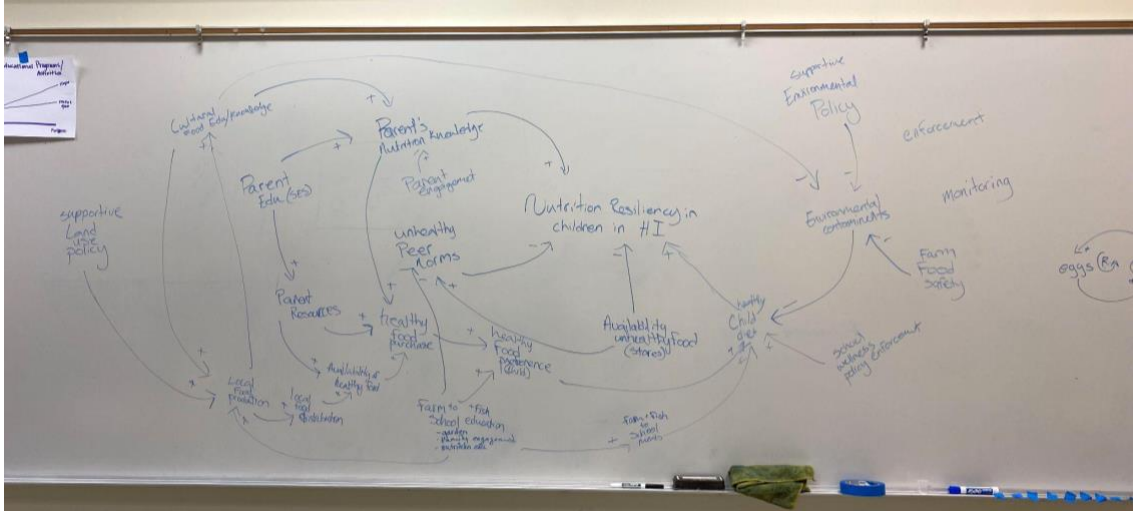 Educational Programs/
Activities
Cultural
Food Edu/knowledge
+
Parent's
Nutrition Knowledge
+
Parent
Engagement
+
Parent
Edu (SES)
+
supportive
Land
use
policy
unhealthy
Peer
Norms
Nutrition Resiliency in
children in HI
supportive
Environmental
Policy
enforcement
monitoring
Environmental
contaminents
Farm
Food
Safety
eggs R
Parent
Resources
healthy
food
purchase
healthy
Food
preference
(child)
Availability
unhealthy food
(stores)
healthy
Child
diet
school
wellness
policy enforcement
Local
Food
production
local
food
distribution
Availability of
healthy food
Farm to + Fish
School education
- garden
- family engagement
- nutrition edu
Farm + Fish
to
school
meals